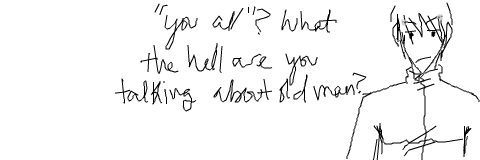 "you all"? What
the hell are you
talking about old man?